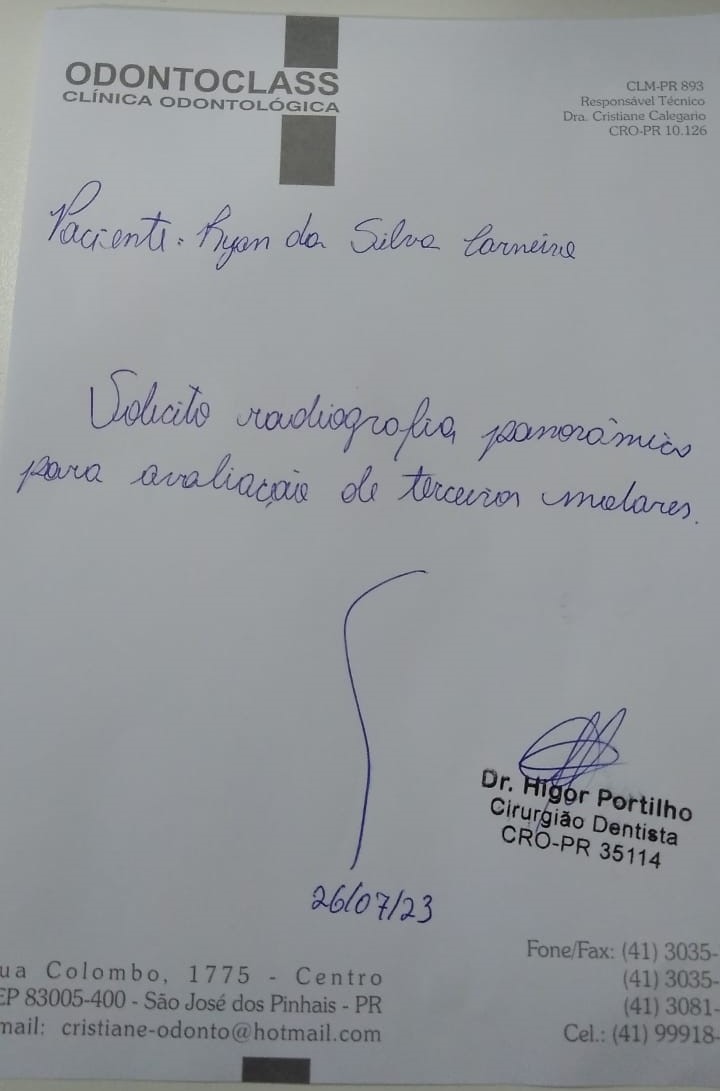 ODONTOCLASS
CLÍNICA ODONTOLÓGICA
CLM-PR 893
Responsável Técnico
Dra. Cristiane Calegario
CRO-PR 10.126
Paciente: Ryan da Silva Carneiro
Solicito radiografia panorâmica
para avaliação de terceiros molares.
Dr. Higor Portilho
Cirurgião Dentista
CRO-PR 35114
26/07/23
ua Colombo, 1775 - Centro
EP 83005-400 - São José dos Pinhais - PR
mail: cristiane-odonto@hotmail.com
Fone/Fax: (41) 3035-
(41) 3035-
(41) 3081-
Cel.: (41) 99918-